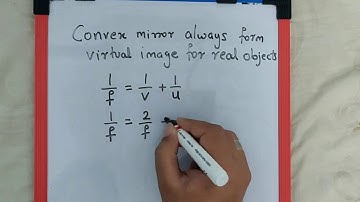 Convex mirror always form
virtual image for real objects
1/f = 1/v + 1/u
1/f = 2/f